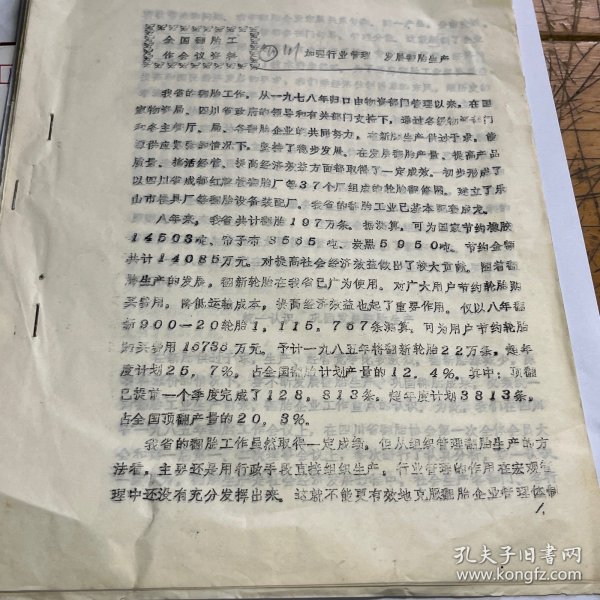 全国翻胎工
作会议资料
加强行业管理 发展翻胎生产
我省的翻胎工作，从一九七八年归口由物资部门管理以来，在国
家物资局、四川省政府的领导和有关部门支持下，通过各级物资部门
和各主管厅、局、各翻胎企业的共同努力，在新胎生产供过于求，能
源供应紧张的情况下，坚持了稳步发展。在发展翻胎产量、提高产品
质量、搞活经营、提高经济效益方面都取得了一定成效。初步形成了
以四川省成都红旗轮翻胎厂等37个厂组成的轮胎翻修网。建立了乐
山市模具厂等翻胎设备装配厂。我省的翻胎工业已基本配套成龙。
八年来，我省共计翻胎197万条。据测算，可为国家节约橡胶
14503吨、帘子布3565吨、炭黑5950吨。节约金额
共计14085万元。对提高社会经济效益做出了较大贡献。随着翻
胎生产的发展，翻新轮胎在我省已广为使用。对广大用户节约轮胎购
买费用，降低运输成本，提高经济效益也起了重要作用。仅以八年翻
新900—20轮胎1，115，767条测算，可为用户节约轮胎
购买费用16736万元。予计一九八五年将翻新轮胎22万条，超年
度计划25．7％，占全国翻胎计划产量的12．4％。其中：顶翻
已提前一个季度完成了128，813条，超年度计划3813条，
占全国顶翻产量的20．3％。
我省的翻胎工作虽然取得一定成绩，但从组织管理翻胎生产的方
法看，主要还是用行政手段直接组织生产，行业管理的作用在宏观管
理中还没有充分发挥出来。这就不能更有效地克服翻胎企业管理体制
1
孔夫子旧书网
www.kongfz.com